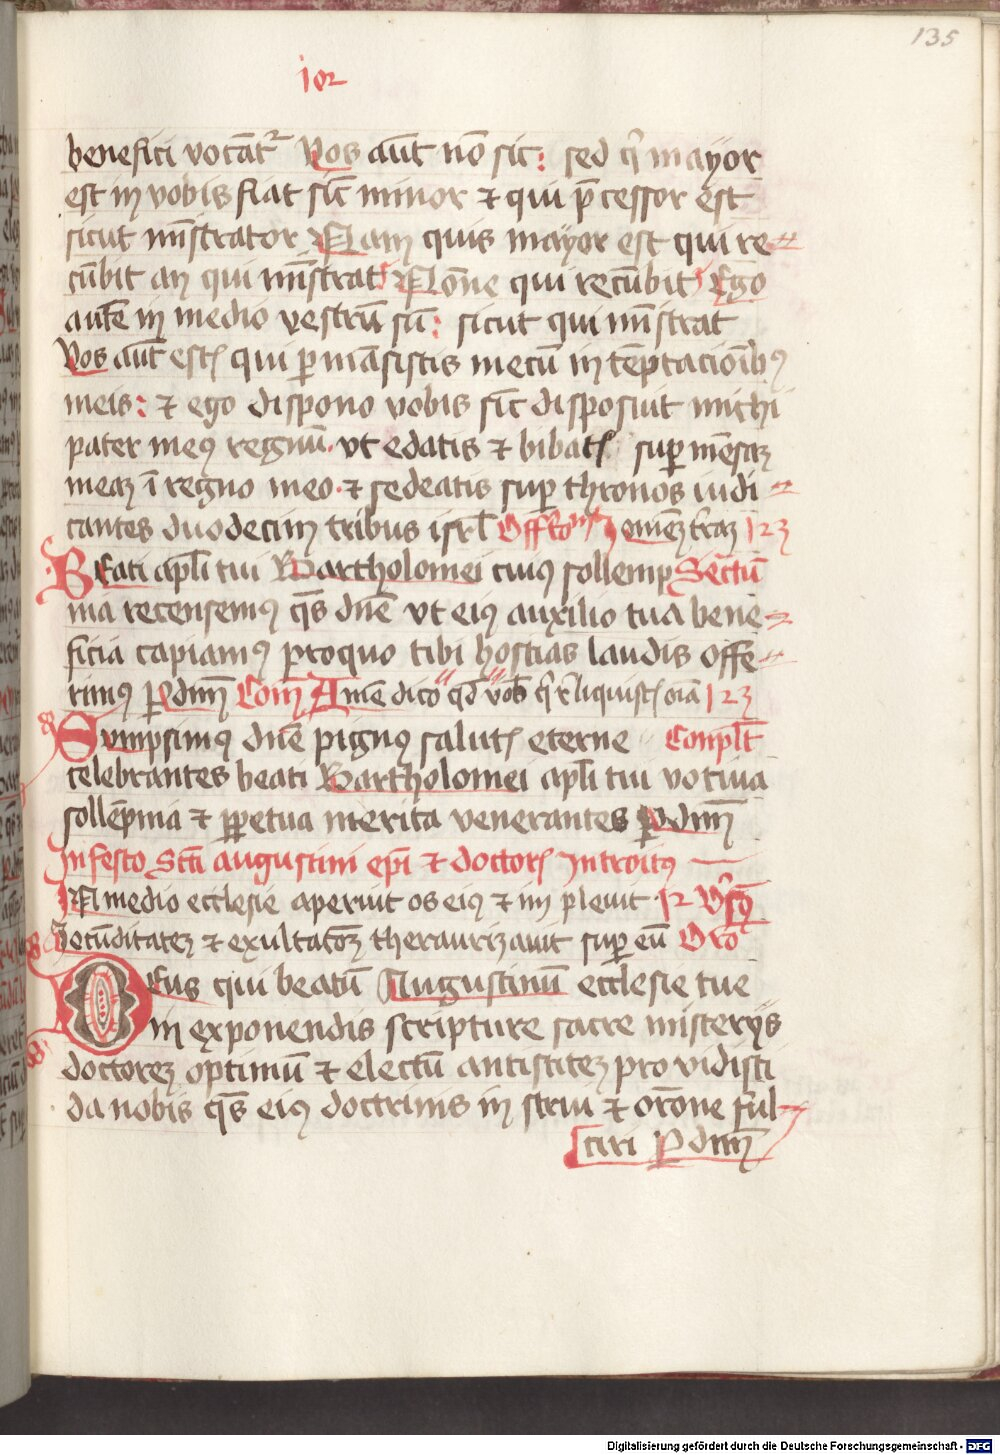 135
benefici vocāt᷑ Vos aūt nō sic: sed q̇ mayor
est in vobis fiat sic̄ minor ⁊ qui p̄cessor est
sicut mīstrator Nam quis mayor est qui re
cūbit an qui mīstrat Nōne qui recūbit Ego
autē in medio vestrū sū: sicut qui mīstrat
Vos aūt estꝭ qui ꝑmāsistis mecū in tēptacioīb9
meis: ⁊ ego dispono vobis sic̄ disposuit michi
pater me9 regnū. vt edatis ⁊ bibatꝭ suꝑ mēsaꝫ
meaꝫ ī regno meo. ⁊ sedeatis suꝑ thronos iudi
cantes duodecim tribus isrl̄ omēꝫ t̄raꝫ 123
Beati apl̄i tui Bartholomei cui9 sollemp Sēctū
nia recensem9 q̄s dn̄e vt ei9 auxilio tua bene
ficia capiam9 pro quo tibi hostias laudis offe
rim9 ꝑ dn̄m Com̄ Amē dico qd̄ vob̄ q̇ reliquistꝭ oīa 123
Sumpsim9 dn̄e pign9 salutꝭ eterne Conpl̄t
celebrantes beati Bartholomei apl̄i tui votiua
sollēpnia ⁊ ꝑpetua merita venerantes ꝑ dn̄m
In festo Scti augustini ep̄i ⁊ doctorꝭ Introit9
In medio ecclesie aperuit os ei9 ⁊ im pleuit
Iocūditateꝫ ⁊ exultatōꝫ thezaurizauit suꝑ eū Oro
Deus qui beatū Augustinū ecclesie tue
in exponendis scripture sacre misterijs
doctoreꝫ optimū ⁊ electū antistiteꝫ pro vidisti
da nobis q̄s ei9 doctrinis in strui ⁊ orōne ful
ciri P dn̄m
Digitalisierung gefördert durch die Deutsche Forschungsgemeinschaft - DFG